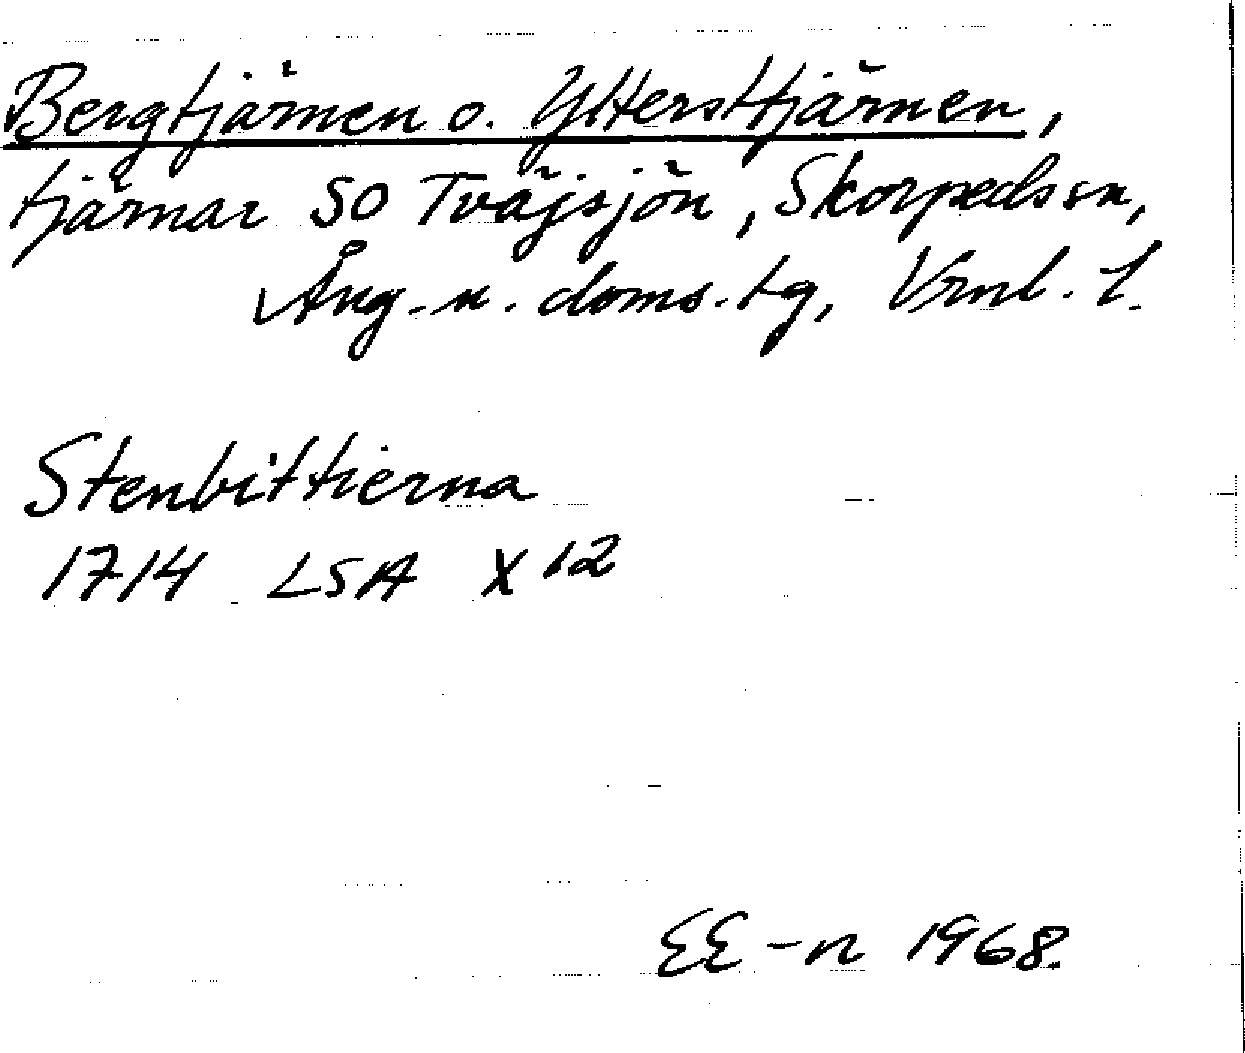 Bergtjärnen o. Yttersttjärnen,
tjärnar SO Tväjsjön, Skorpeds sn,
Ång. n. doms. tg, Vrnl. l.
Stenbittierna
1714 LSA X 12
EE-n 1968.